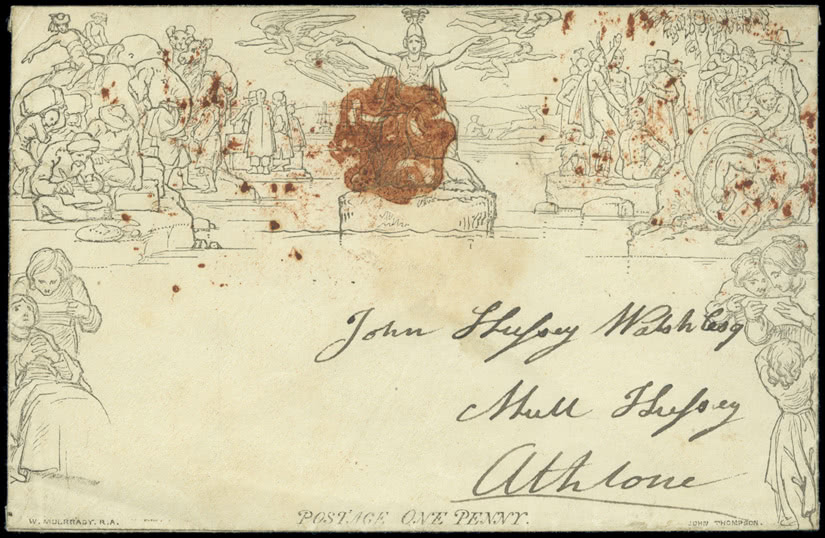 John Hussey Walsh Esq
Mull Hussey
Athlone
W. MULREADY, R.A.
POSTAGE ONE PENNY.
JOHN THOMPSON.